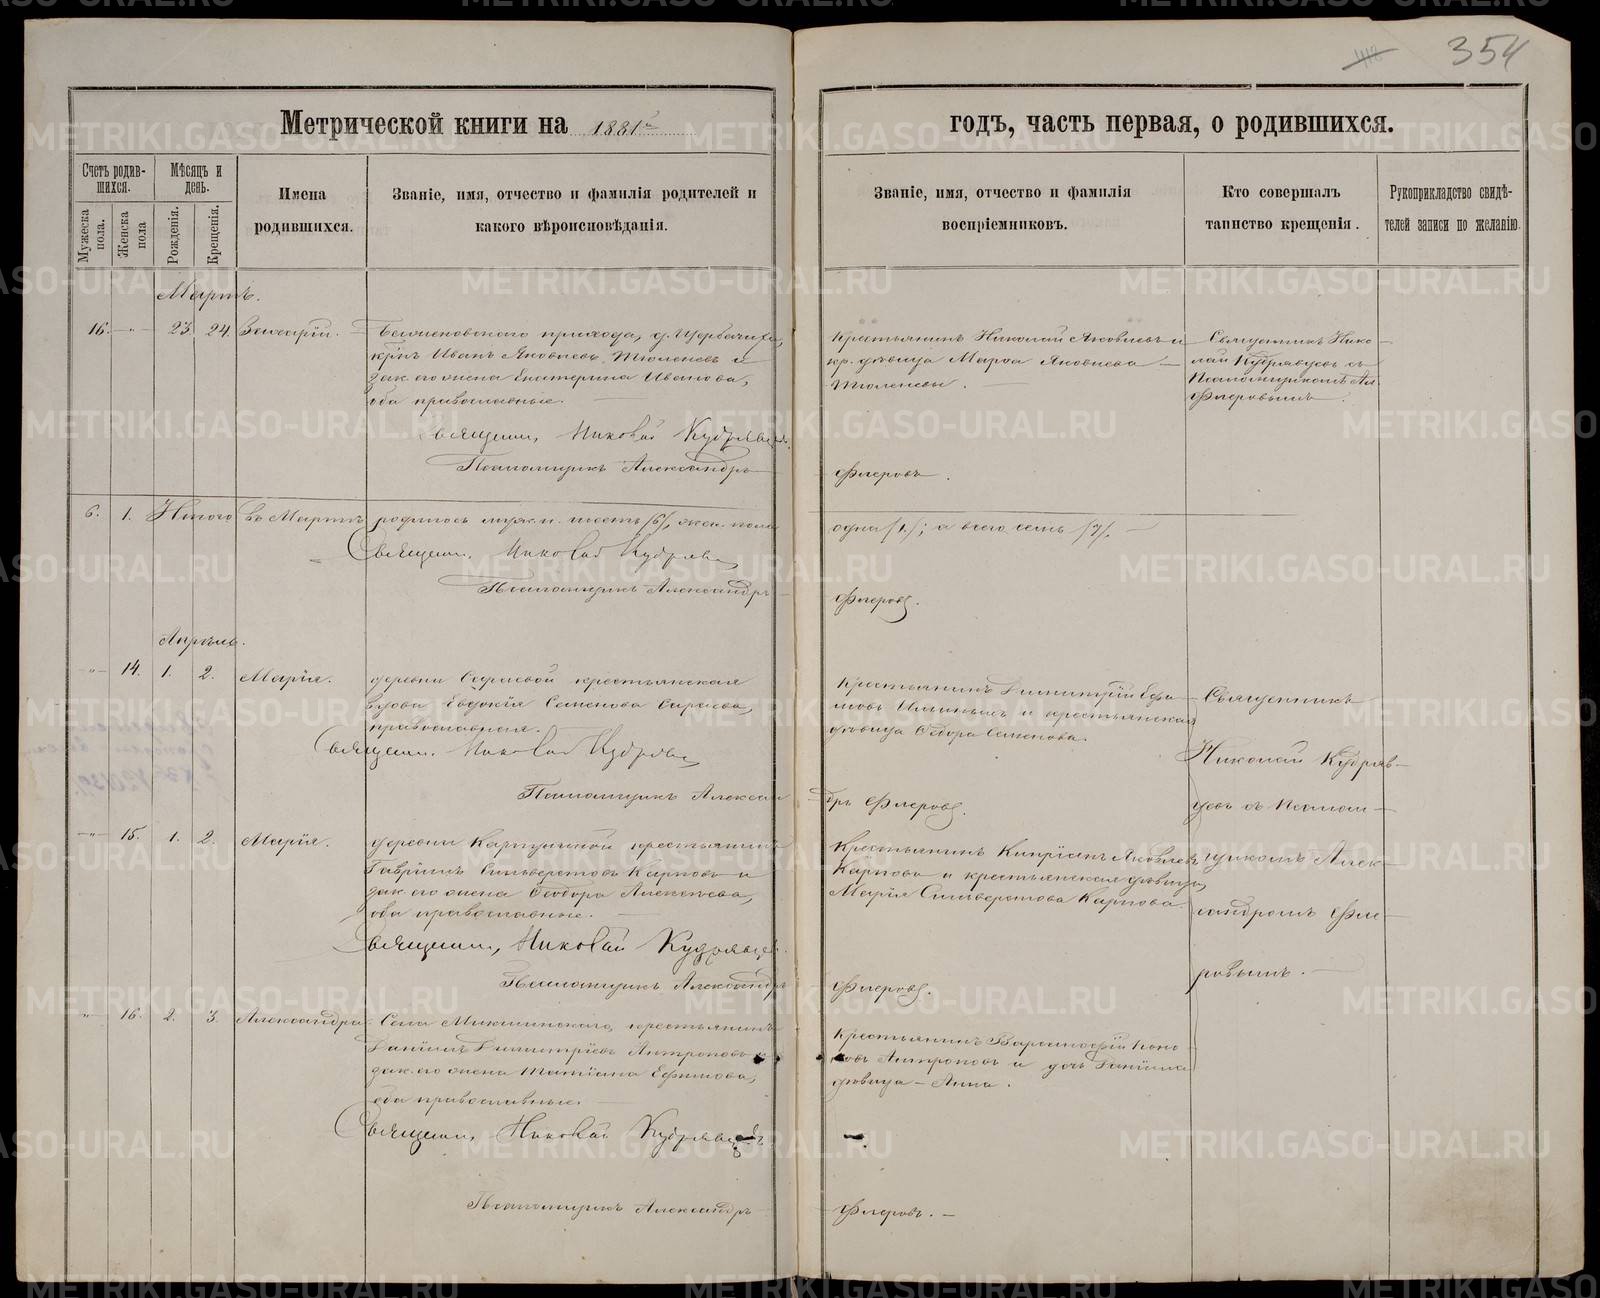 354
Метрической книги на 1881 г
годъ, часть первая, о родившихся.
Счетъ родив-
шихся.
Мѣсяцъ и
день.
Имена
родившихся.
Званіе, имя, отчество и фамилія родителей и
какого вѣроисповѣданія.
Званіе, имя, отчество и фамилія
воспріемниковъ.
Кто совершалъ
таинство крещенія.
Рукоприкладство свидѣ-
телей записи по желанію.
Мужеска
пола.
Женска
пола
Рожденія.
Крещенія.
Мартъ.
16. " 23. 24. Захарій.
прихода, д. Щербачиха,
крнъ Иванъ Яковлевъ Тюленевъ и
зак. его жена Екатерина Иванова,
оба православные.
Священ. Николай Кудрявцевъ
Псаломщикъ Александръ
Крестьянинъ Николай Яковлевъ и
кр. дѣвица Марѳа Яковлева
Тюленевы.
Флеровъ.
Священникъ Нико-
лай Кудрявцевъ съ
Псаломщикомъ Ал.
Флеровымъ.
6. 1. Итого въ Мартѣ родилось муж. п. шесть /6/, жен. пола
одна /1/; а всего семь /7/.
Священ. Николай Кудрявц
Псаломщикъ Александръ
Флеровъ.
Апрѣль.
" 14. 1. 2. Марія.
деревни крестьянская
вдова Евдокія Семенова
православная.
Священ. Николай Кудрявц
Псаломщикъ Алексан
Крестьянинъ Димитрій
и крестьянская
дѣвица Ѳедора Семенова.
дръ Флеровъ.
Священникъ
Николай Кудряв-
цевъ съ Псалом-
щикомъ Алек-
сандромъ Фле-
ровымъ.
" 15. 1. 2. Марія.
деревни крестьянинъ
Гавріилъ Сильверстовъ Карповъ и
зак. его жена Ѳеодора Алексѣева,
оба православные.
Священ. Николай Кудрявцев
Псаломщикъ Александръ
Крестьянинъ Кипріанъ Яковлевъ
Карповъ и крестьянская дѣвица,
Марія Сильверстова Карпова.
Флеровъ.
" 16. 2. 3. Александра
Села крестьянинъ
Даніилъ Димитріевъ Антроповъ и
зак. его жена Татіана Ефимова,
оба православные.
Священ. Николай Кудрявцевъ
Псаломщикъ Александръ
Крестьянинъ
Антроповъ и дочь Даніила
дѣвица – Анна.
Флеровъ. –
METRIKI.GASO-URAL.RU